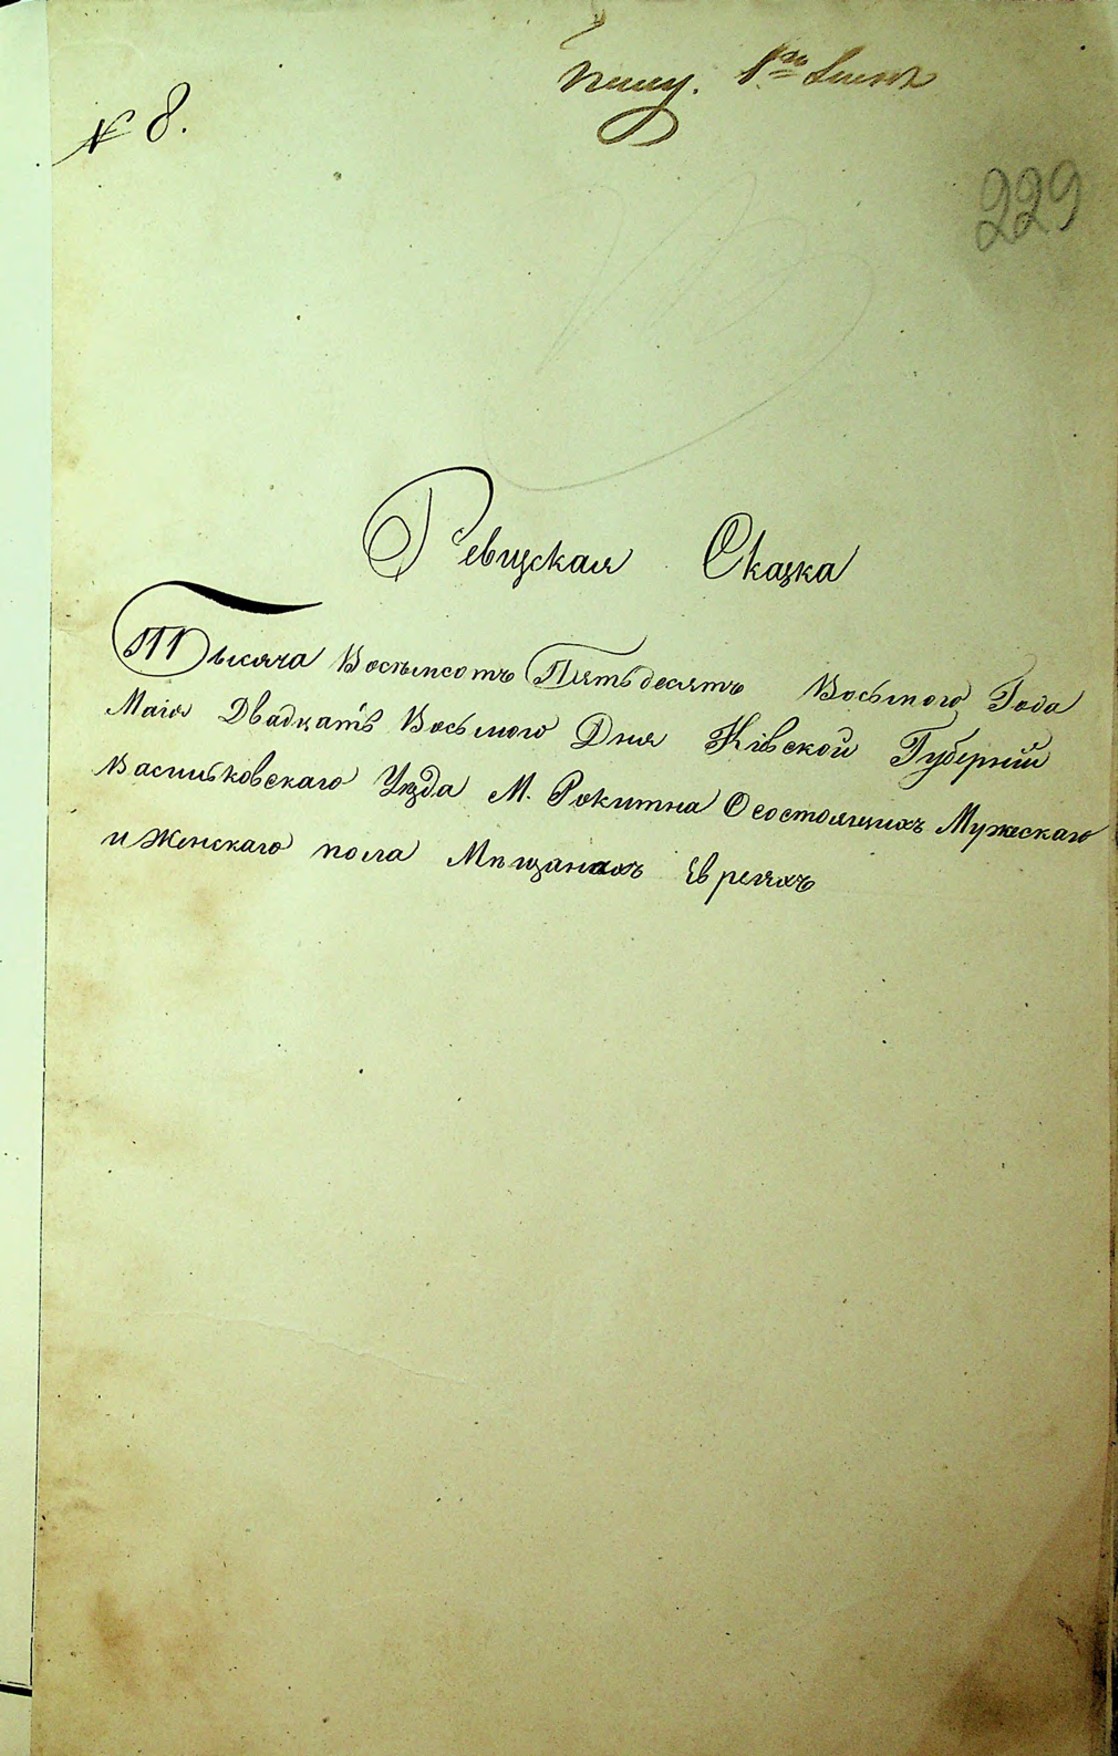 № 8.
229
Ревизская Сказка
Тысяча Восемьсотъ Пятьдесятъ Восьмого Года
Маія Двадцать Восьмого Дня Кіевской Губерніи
Васильковскаго Уезда М. Рокитна О состоящихъ Мужескаго
и Женскаго пола Мѣщанахъ Евреяхъ